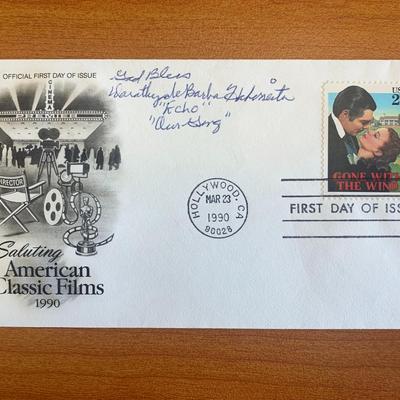 OFFICIAL FIRST DAY OF ISSUE
CINEMA
PREMIERE
God Bless
Dorothy de Borba
"Echo"
"Our Gang"
US
2
GONE WIT
THE WIN
HOLLYWOOD, CA
MAR 23
1990
90028
FIRST DAY OF ISSUE
DIRECTOR
Saluting
American
Classic Films
1990